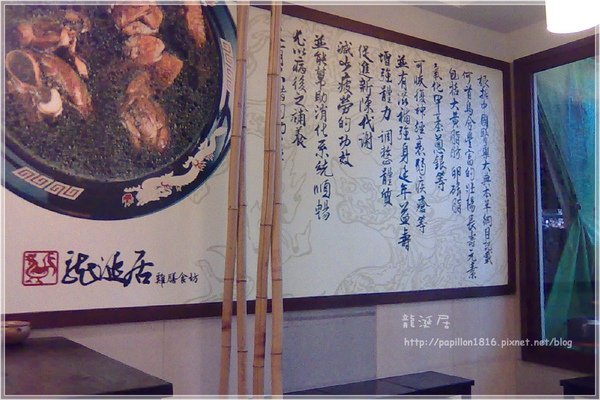 根據中國醫學大典本草綱目記載
何首烏含豐富的壯陽長壽元素
包括大黃脂肪 卵磷脂
氧化甲基蔥銀等
可恢復神經衰弱等
並有滋補強身延年益壽
增強體力 調整體質
促進新陳代謝
減少疲勞的功效
並能幫助消化系統順暢
尤以病後之補養
龍涎居 雞膳食坊
龍涎居
http://papillon1816.pixnet.net/blog